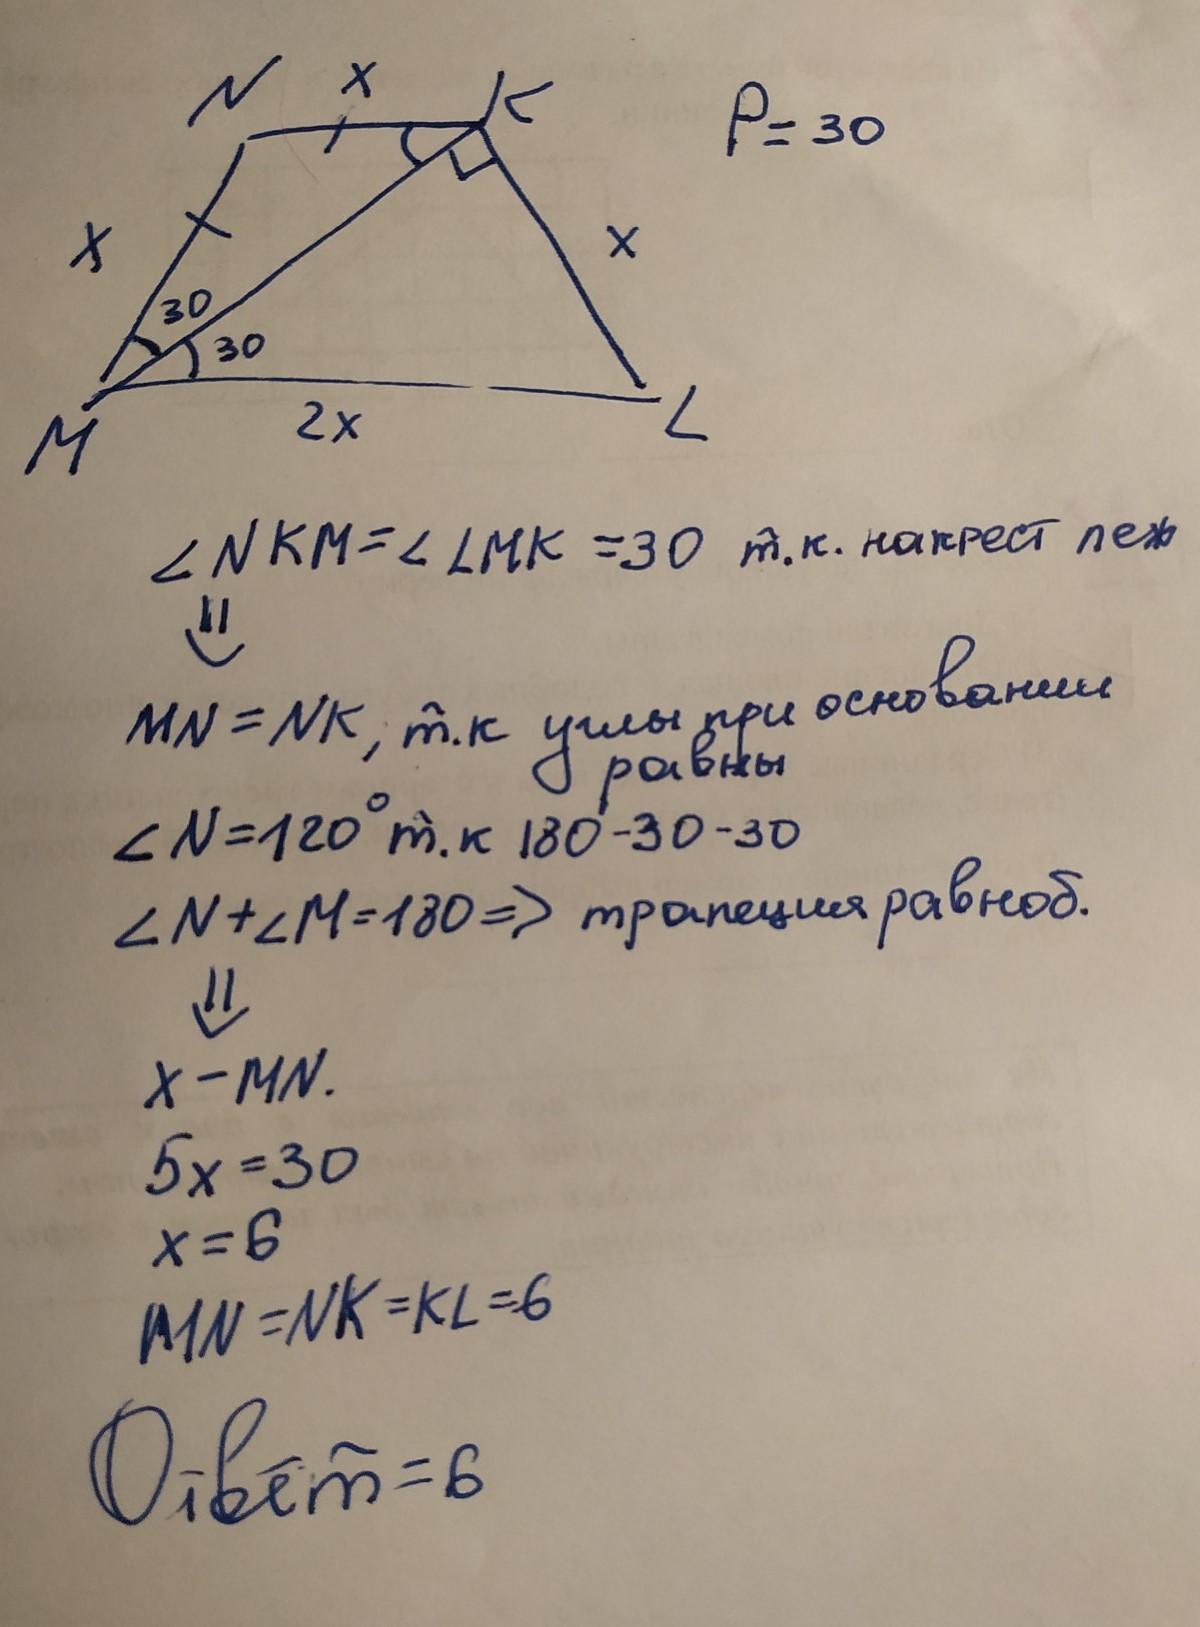 N x K P = 30
x x
30
30
M 2x L
∠NKM = ∠LMK = 30 т.к. накрест леж
⇓
MN = NK, т.к углы при основании
равны
∠N = 120° т.к 180 - 30 - 30
∠N + ∠M = 180 => трапеция равноб.
⇓
x - MN.
5x = 30
x = 6
MN = NK = KL = 6
Ответ = 6